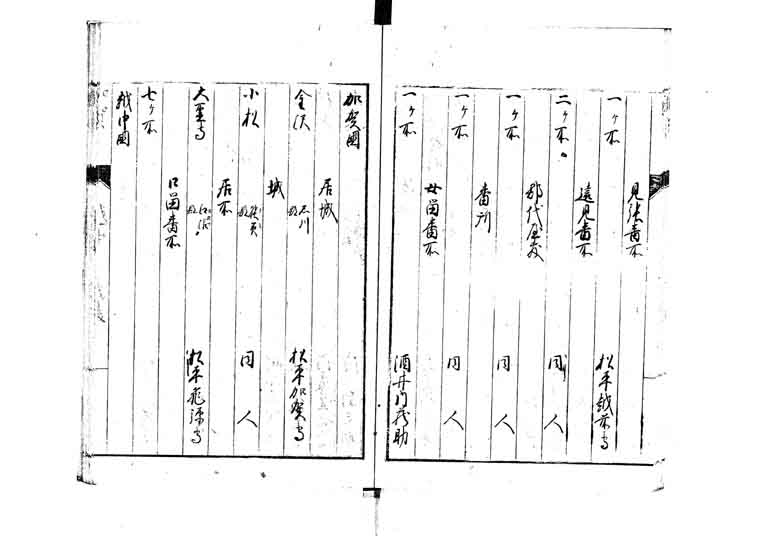 見張番所
一ヶ所 松平越前守
遠見番所
二ヶ所 同人
郡代屋敷
一ヶ所 同人
番所
一ヶ所 同人
口留番所
一ヶ所 酒井内蔵助
加賀國
居城
金沢 石川郡 松平加賀守
城
小松 能美郡 同人
居所
大聖寺 江沼郡 松平飛騨守
口留番所
七ヶ所
越中國